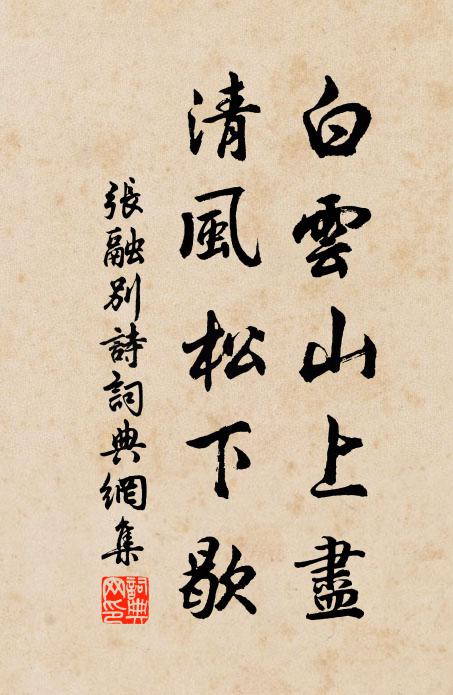 白雲山上盡
清風松下歇
張融別詩詞典網集
詞典
網印